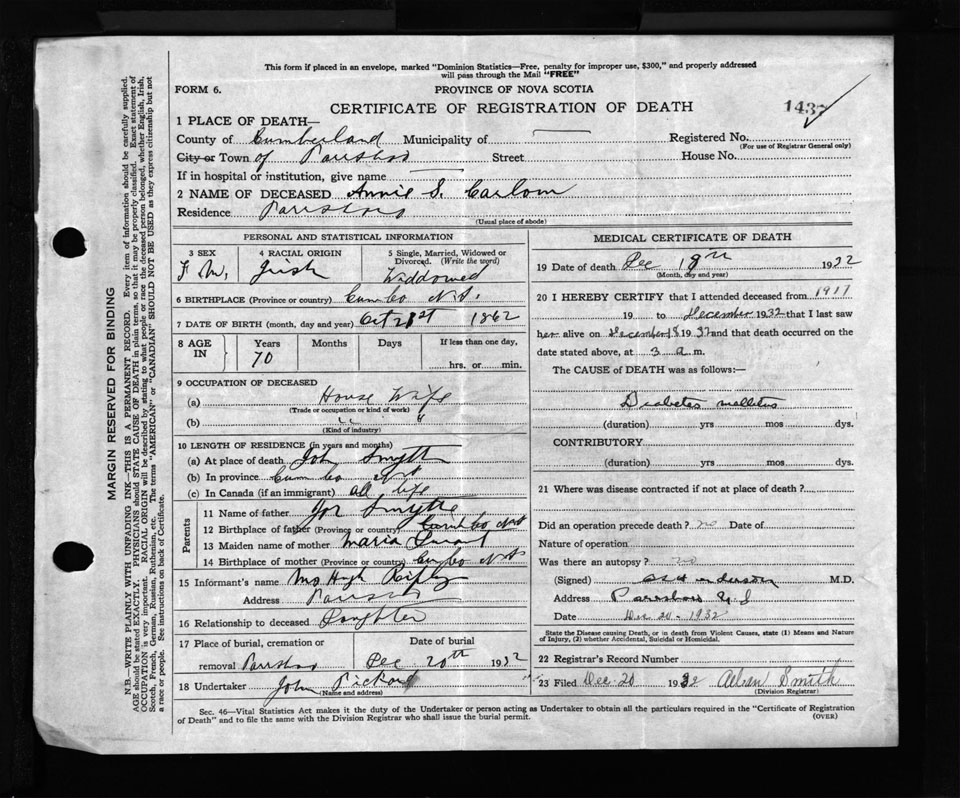 This form if placed in an envelope, marked "Dominion Statistics—Free, penalty for improper use, $300," and properly addressed
will pass through the Mail "FREE"
FORM 6. PROVINCE OF NOVA SCOTIA
CERTIFICATE OF REGISTRATION OF DEATH 1437
1 PLACE OF DEATH—
County of Cumberland Municipality of Registered No.
(For use of Registrar General only)
City or Town of Parrsboro Street House No.
If in hospital or institution, give name
2 NAME OF DECEASED Annie S. Carlow
Residence Parrsboro
(Usual place of abode)
PERSONAL AND STATISTICAL INFORMATION
3 SEX 4 RACIAL ORIGIN 5 Single, Married, Widowed or
Divorced. (Write the word)
F Irish Widdowed
6 BIRTHPLACE (Province or country) Cum Co N.S.
7 DATE OF BIRTH (month, day and year) Oct 21st 1862
8 AGE IN Years Months Days If less than one day,
70 hrs. or min.
9 OCCUPATION OF DECEASED
(a) House Wife
(Trade or occupation or kind of work)
(b) " "
(Kind of industry)
10 LENGTH OF RESIDENCE (in years and months)
(a) At place of death Smyth
(b) In province Cum Co N.S.
(c) In Canada (if an immigrant) all life
Parents
11 Name of father Smythe
12 Birthplace of father (Province or country) Cumb Co N.S.
13 Maiden name of mother Maria
14 Birthplace of mother (Province or country) Cum Co N.S.
15 Informant's name Mrs Hugh
Address Parrsboro
16 Relationship to deceased Daughter
17 Place of burial, cremation or Date of burial
removal Parrsboro Dec 20th 1932
18 Undertaker John Pickard
(Name and address)
MEDICAL CERTIFICATE OF DEATH
19 Date of death Dec 18th 1932
(Month, day and year)
20 I HEREBY CERTIFY that I attended deceased from 1917
19 to December 1932 that I last saw
her alive on December 18 1932 and that death occurred on the
date stated above, at 3 a.m.
The CAUSE of DEATH was as follows:—
Diabetes mellitus
(duration) yrs mos dys.
CONTRIBUTORY
(duration) yrs mos dys.
21 Where was disease contracted if not at place of death?
Did an operation precede death? no Date of
Nature of operation
Was there an autopsy? no
(Signed) M.D.
Address Parrsboro N.S
Date Dec 20 - 1932
State the Disease causing Death, or in death from Violent Causes, state (1) Means and Nature
of Injury, (2) whether Accidental, Suicidal or Homicidal.
22 Registrar's Record Number
23 Filed Dec 20 1932 Smith
(Division Registrar)
Sec. 46—Vital Statistics Act makes it the duty of the Undertaker or person acting as Undertaker to obtain all the particulars required in the "Certificate of Registration
of Death" and to file the same with the Division Registrar who shall issue the burial permit. (OVER)
MARGIN RESERVED FOR BINDING
N.B.—WRITE PLAINLY WITH UNFADING INK—THIS IS A PERMANENT RECORD. Every item of information should be carefully supplied.
AGE should be stated EXACTLY. PHYSICIANS should STATE CAUSE OF DEATH in plain terms, so that it may be properly classified. Exact statement of
OCCUPATION is very important. RACIAL ORIGIN will be described by stating to what people or race the deceased person belonged, whether English, Irish,
Scotch, French, German, Russian, Ruthenian, etc. The terms "AMERICAN" or "CANADIAN" SHOULD NOT BE USED as they express citizenship but not
a race or people. See instructions on back of Certificate.